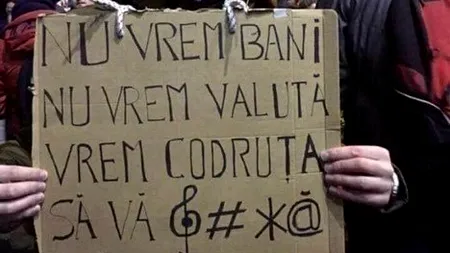 NU VREM BANI
NU VREM VALUTĂ
VREM CODRUȚA
SĂ VĂ 𝄞#*@